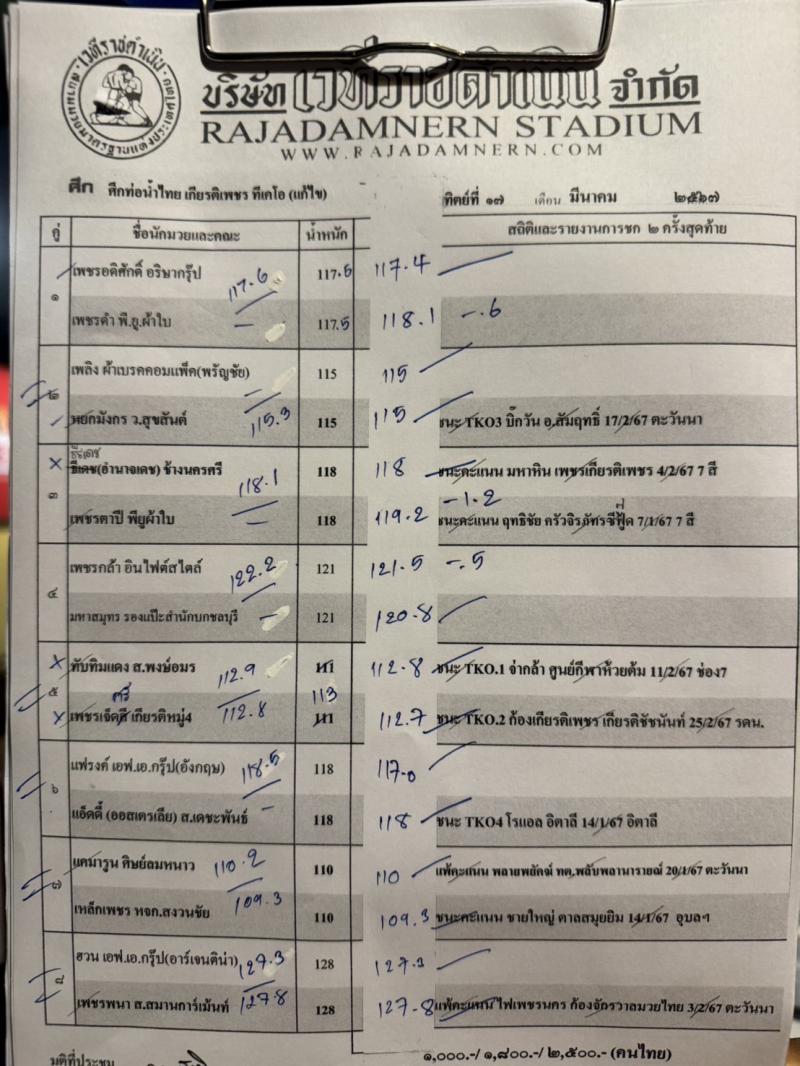 เวทีราชดำเนิน
บริษัท เวทีราชดำเนิน จำกัด
RAJADAMNERN STADIUM
WWW.RAJADAMNERN.COM
ศึก ศึกท่อน้ำไทย เกียรติเพชร ทีเคโอ (แก้ไข) ทิตย์ที่ ๑๗ เดือน มีนาคม ๒๕๖๗
คู่ ชื่อนักมวยและคณะ น้ำหนัก สถิติและรายงานการชก ๒ ครั้งสุดท้าย
เพชรอดิศักดิ์ อริษากรุ๊ป 117.6 117.5 117.4
๑
เพชรดำ พี.ยู.ผ้าใบ — 117.5 118.1 -.6
เพลิง ผ้าเบรคคอมแพ็ค(พรัญชัย) — 115 115
๒
หยกมังกร ว.สุขสันต์ 115.3 115 115 ชนะ TKO3 บิ๊กวัน อ.สัมฤทธิ์ 17/2/67 ตะวันนา
ธีเดช
ธีเดช(อำนาจเดช) ช้างนครศรี 118.1 118 118 ชนะคะแนน มหาหิน เพชรเกียรติเพชร 4/2/67 7 สี
๓
เพชรตาปี พียูผ้าใบ — 118 119.2 -1.2 ชนะคะแนน ฤทธิชัย ครัวจิรภัทรซีฟู๊ด 7/1/67 7 สี
เพชรกล้า อินไฟต์สไตล์ 122.2 121 121.5 -.5
๔
มหาสมุทร รองแป๊ะสำนักบกชลบุรี — 121 120.8
ทับทิมแดง ส.พงษ์อมร 112.9 111 112.8 ชนะ TKO.1 จ่ากล้า ศูนย์กีฬาห้วยต้ม 11/2/67 ช่อง7
๕ ศรี 113
เพชรเจ็ดสี เกียรติหมู่4 112.8 111 112.7 ชนะ TKO.2 ก้องเกียรติเพชร เกียรติชัชนันท์ 25/2/67 รดน.
แฟรงค์ เอฟ.เอ.กรุ๊ป(อังกฤษ) 118.5 118 117.0
๖
แอ็ดดี้ (ออสเตรเลีย) ส.เดชะพันธ์ — 118 118 ชนะ TKO4 โรแอล อิตาลี 14/1/67 อิตาลี
แคมารูน ศิษย์ลมหนาว 110.2 110 110 แพ้คะแนน พลายพยัคฆ์ ทต.พลับพลานารายณ์ 20/1/67 ตะวันนา
๗
เหล็กเพชร หจก.สงวนชัย 109.3 110 109.3 ชนะคะแนน ชายใหญ่ ตาลสมุยยิม 14/1/67 อุบลฯ
ฮวน เอฟ.เอ.กรุ๊ป(อาร์เจนติน่า) 127.3 128 127.3
๘
เพชรพนา ส.สมานการ์เม้นท์ 127.8 128 127.8 แพ้คะแนน ไฟเพชรนคร ก้องจักรวาลมวยไทย 3/2/67 ตะวันนา
มติที่ประชุม ๑,๐๐๐.-/ ๑,๘๐๐.-/ ๒,๕๐๐.- (คนไทย)